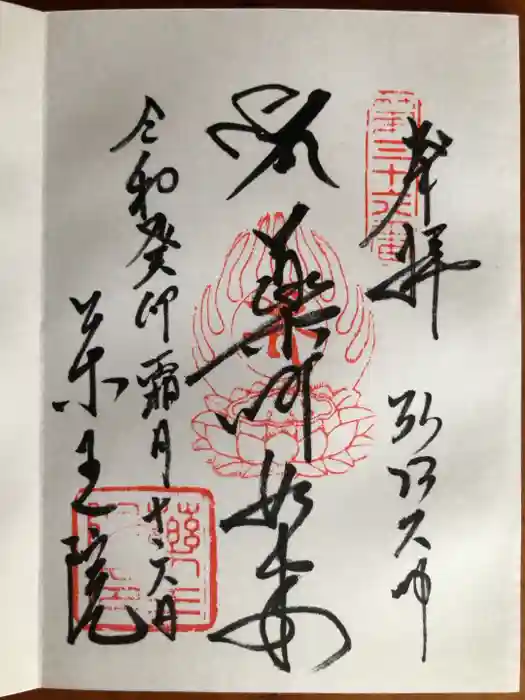 第三十六番
奉拝
弘法大師
薬師如来
令和癸卯霜月十六日
薬王院